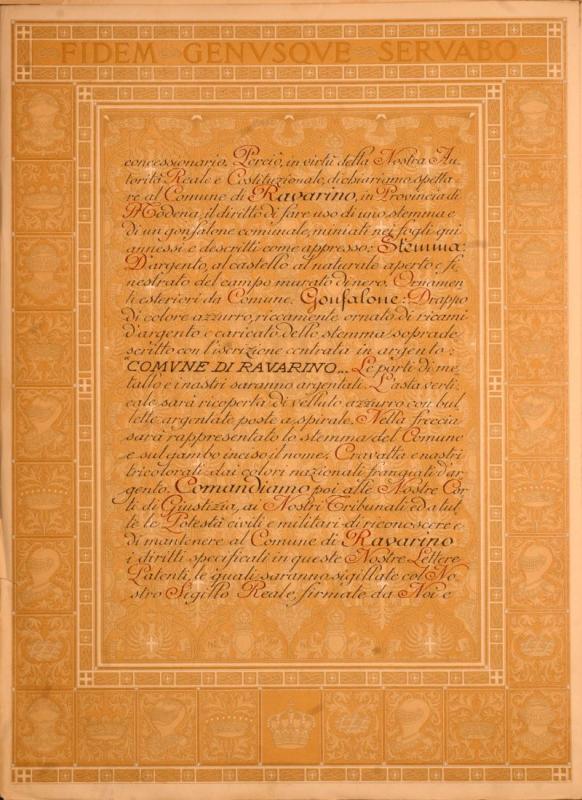 FIDEM GENVSQVE SERVABO
concessionario. Perciò, in virtù della Nostra Au-
torità Reale e Costituzionale, dichiariamo spetta-
re al Comune di Ravarino, in Provincia di
Modena, il diritto di fare uso di uno stemma e
di un gonfalone comunale, miniati nei fogli qui
annessi e descritti come appresso: Stemma:
D'argento, al castello al naturale aperto e fi-
nestrato del campo murato di nero. Ornamen-
ti esteriori da Comune. Gonfalone: Drappo
di colore azzurro, riccamente ornato di ricami
d'argento e caricato dello stemma soprade-
scritto con l'iscrizione centrata in argento:
"COMVNE DI RAVARINO„. Le parti di me-
tallo e i nastri saranno argentati. L'asta verti-
cale sarà ricoperta di velluto azzurro con bul-
lette argentate poste a spirale. Nella freccia
sarà rappresentato lo stemma del Comune
e sul gambo inciso il nome. Cravatta e nastri
tricolorati dai colori nazionali frangiati d'ar-
gento. Comandiamo poi alle Nostre Cor-
ti di Giustizia, ai Nostri Tribunali ed a tut-
te le Potestà civili e militari di riconoscere e
di mantenere al Comune di Ravarino
i diritti specificati in queste Nostre Lettere
Patenti, le quali saranno sigillate col No-
stro Sigillo Reale, firmate da Noi e